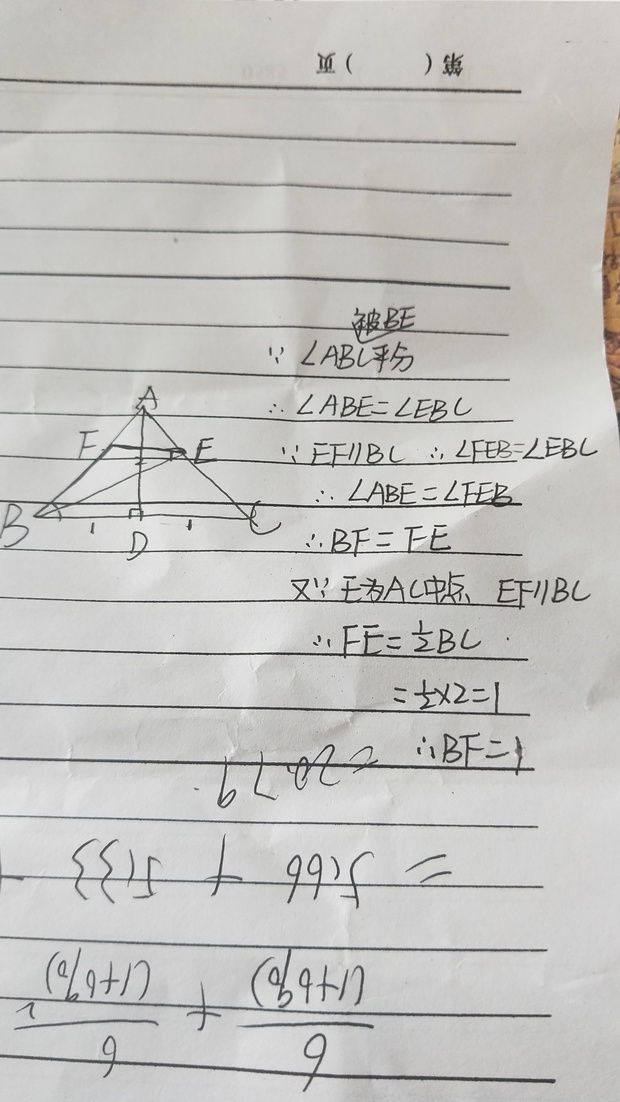 第 ( ) 页
被BE
∵ ∠ABC平分
∴ ∠ABE=∠EBC
∵ EF∥BC ∴ ∠FEB=∠EBC
∴ ∠ABE=∠FEB
∴ BF=FE
又∵ E为AC中点 EF∥BC
∴ FE=½BC
=½×2=1
∴ BF=1
A
F E
B D C
1 1
6/(1+6%) + 6/(1+6%)²
= 5.66 +